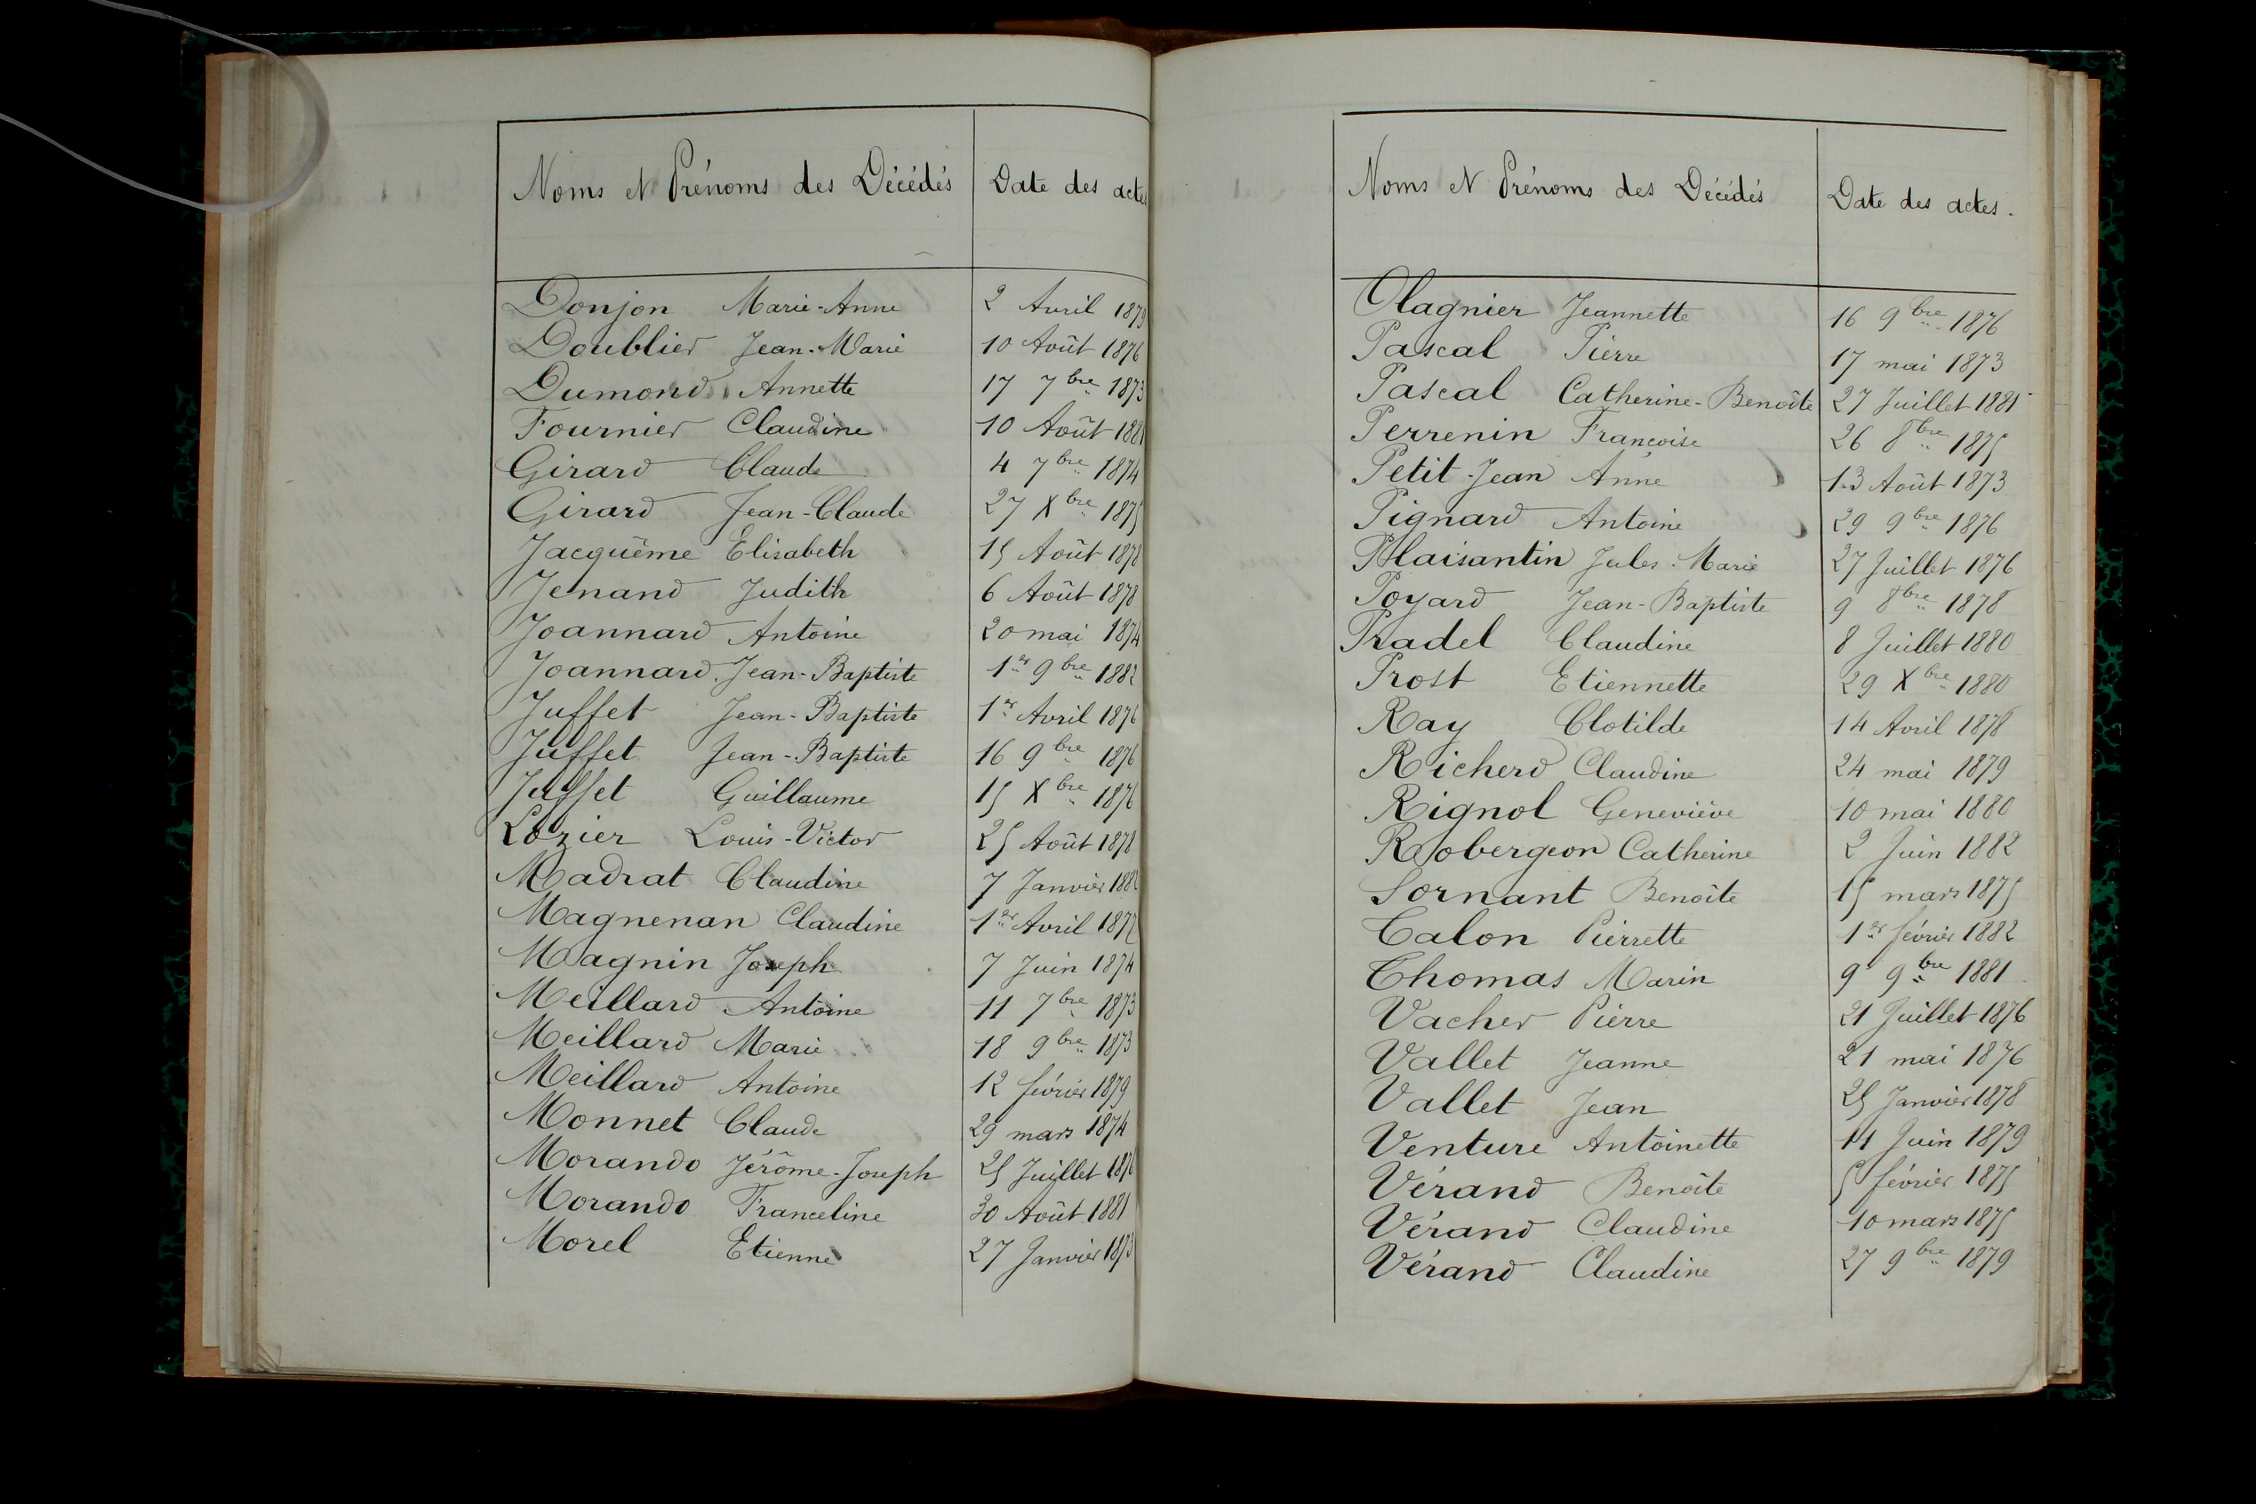 Noms et Prénoms des Décédés Date des actes
Donjon Marie-Anne 2 Avril 1879
Doublier Jean-Marie 10 Août 1876
Dumond Annette 17 7bre 1873
Fournier Claudine 10 Août 1881
Girard Claude 4 7bre 1874
Girard Jean-Claude 27 Xbre 1875
Jacquême Elisabeth 15 Août 1878
Jenand Judith 6 Août 1878
Joannard Antoine 20 mai 1874
Joannard Jean-Baptiste 1er 9bre 1882
Juffet Jean-Baptiste 1er Avril 1876
Juffet Jean-Baptiste 16 9bre 1876
Juffet Guillaume 15 Xbre 1876
Lozier Louis-Victor 25 Août 1878
Madrat Claudine 7 Janvier 1882
Magnenan Claudine 1er Avril
Magnin Joseph 7 Juin 1874
Meillard Antoine 11 7bre 1873
Meillard Marie 18 9bre 1873
Meillard Antoine 12 février 1879
Monnet Claude 29 mars 1874
Morando Jérôme-Joseph 25 Juillet 1876
Morando Franceline 30 Août 1881
Morel Etienne 27 Janvier 1873
Noms et Prénoms des Décédés Date des actes.
Olagnier Jeannette 16 9bre 1876
Pascal Pierre 17 mai 1873
Pascal Catherine-Benoîte 27 Juillet 1881
Perrenin Françoise 26 8bre 1875
Petit-Jean Anne 13 Août 1873
Pignard Antoine 29 9bre 1876
Plaisantin Jules-Marie 27 Juillet 1876
Poyard Jean-Baptiste 9 8bre 1878
Pradel Claudine 8 Juillet 1880
Prost Etiennette 29 Xbre 1880
Ray Clotilde 14 Avril 1878
Richerd Claudine 24 mai 1879
Rignol Geneviève 10 mai 1880
Robergeon Catherine 2 Juin 1882
Sornant Benoîte 15 mars 1875
Talon Pierrette 1er février 1882
Thomas Marin 9 9bre 1881
Vacher Pierre 21 Juillet 1876
Vallet Jeanne 21 mai 1876
Vallet Jean 25 Janvier 1878
Venture Antoinette 11 Juin 1879
Vérand Benoîte 5 février 1875
Vérand Claudine 10 mars 1875
Vérand Claudine 27 9bre 1879